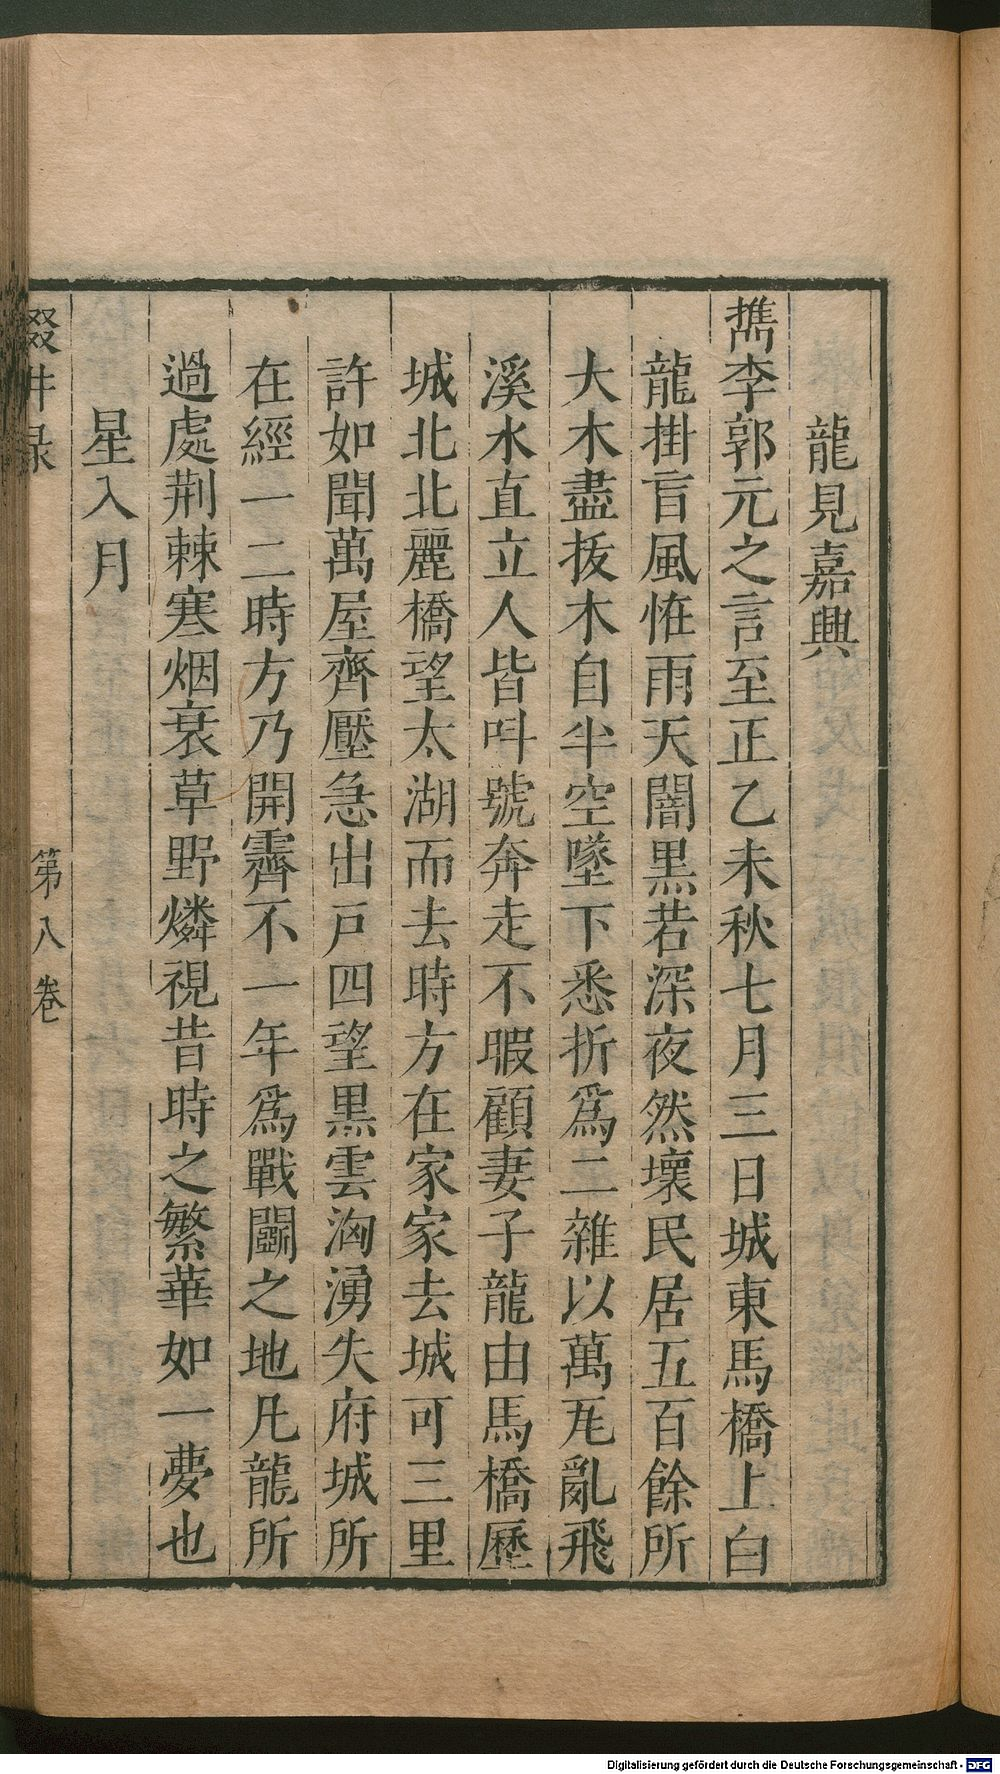 龍見嘉興
檇李郭元之言至正乙未秋七月三日城東馬橋上白
龍掛盲風恠雨天闇黑若深夜然壞民居五百餘所
大木盡拔木自半空墜下悉折爲二雜以萬瓦亂飛
溪水直立人皆呌號奔走不暇顧妻子龍由馬橋歷
城北北麗橋望太湖而去時方在家家去城可三里
許如聞萬屋齊壓急出戸四望黒雲洶湧失府城所
在經一二時方乃開霽不一年爲戰鬭之地凡龍所
過處荆棘寒烟衰草野燐視昔時之繁華如一夢也
星入月
輟畊录 第八卷
Digitalisierung gefördert durch die Deutsche Forschungsgemeinschaft - DFG